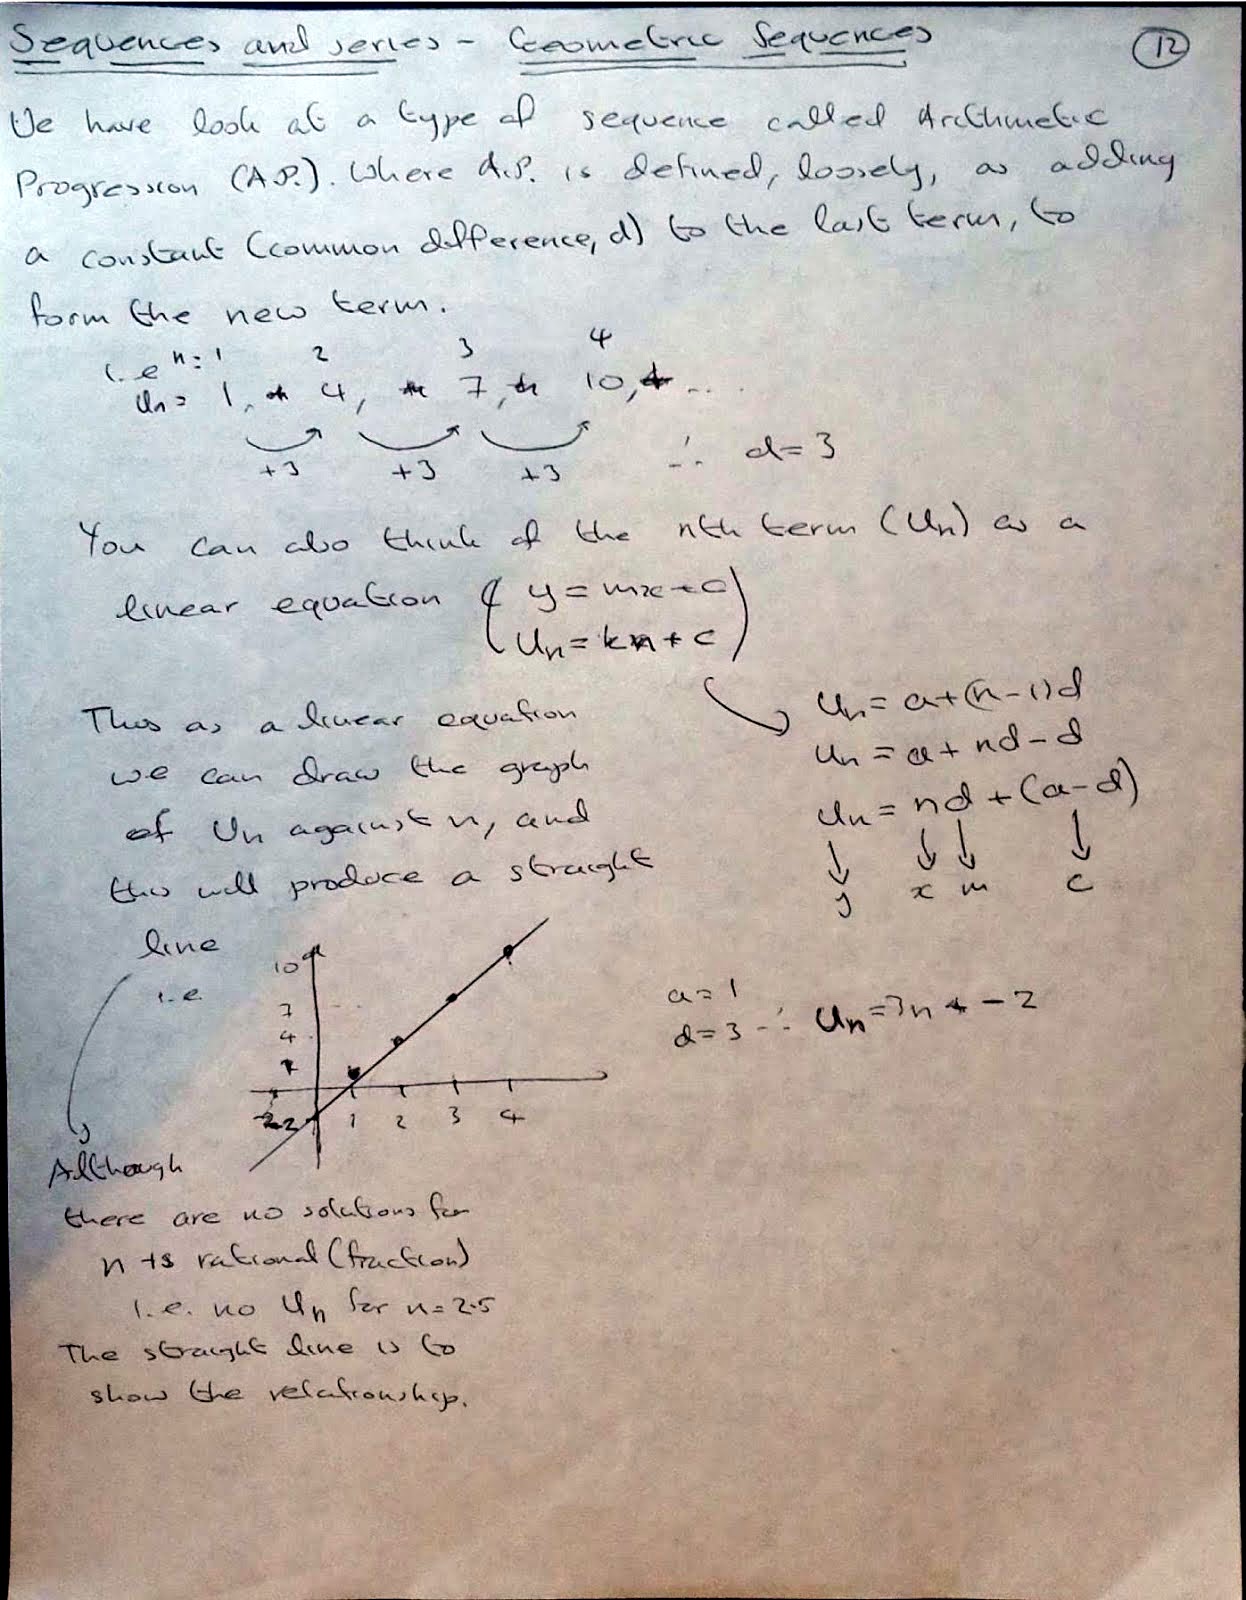 Sequences and series - Geometric Sequences
12
We have look at a type of sequence called Arithmetic
Progression (A.P.). Where A.P. is defined, loosely, as adding
a constant (common difference, d) to the last term, to
form the new term.
i.e n = 1 2 3 4
Un = 1, 4, 7, 10, ...
+3 +3 +3 ∴ d = 3
You can also think of the nth term (Un) as a
linear equation ( y = mx + c
Un = kn + c )
Un = a + (n - 1)d
Un = a + nd - d
Un = nd + (a - d)
y x m c
Thus as a linear equation
we can draw the graph
of Un against n, and
this will produce a straight
line
i.e.
10
7
4
1
-2
1 2 3 4
a = 1
d = 3 ∴ Un = 3n - 2
Although
there are no solutions for
n is rational (fraction)
i.e. no Un for n = 2.5
The straight line is to
show the relationship.